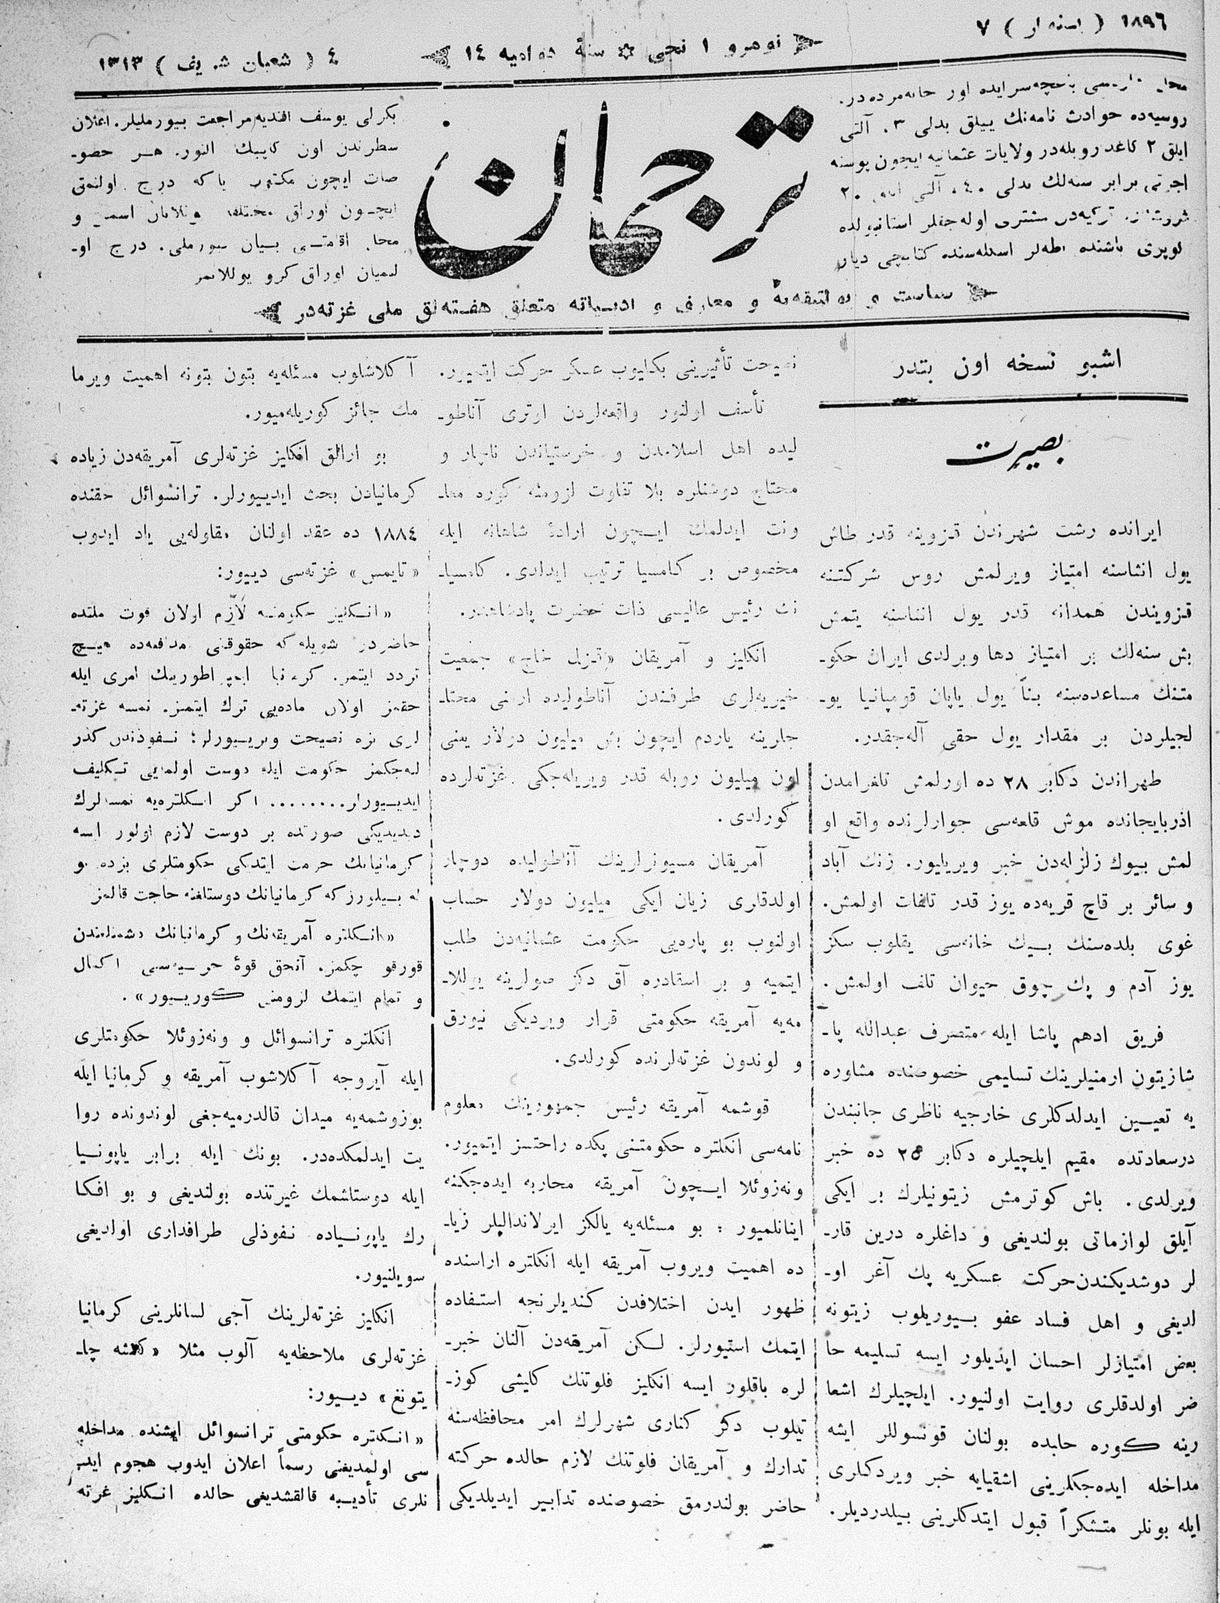 ١٨٩٦ ( ) ٧
نوهرو ١ نجی ✩ سنۀ دواديه ١٤
٤ ( شعبان شريف ) ١٣١٣
باغچه‌سرايده اور خانه‌مزده‌در.
روسيه‌ده حوادث نامه‌نك ييللق بدلی ٣، آلتی
ايلق ٢ كاغد روبله‌در ولايات عثمانيه ايچون پوسته
اجرتی برابر سنه‌لك بدلی ٤٠، آلتی ٢٠
تركيه‌دن مشتری اوله‌جقلر استانبولده
ترجمان
بكرلی يوسف افنديه مراجعت بيورمليلر. اعلان
سطرندن اون كاپيك النور. هر خصو-
صات ايچون مكتوب درج اولنمق
ايچون اوراق
محل اقامتی بيان بيورملی. درج او-
لنميان اوراق كرو يوللانمز
سياست و و معارف و ادبياته متعلق هفته‌لق ملی غزته‌در
اشبو نسخه اون بتدر
بصيرت
ايرانده رشت شهرندن قزوينه قدر طاش
يول انشاسنه امتياز ويرلمش روس شركتنه
قزويندن همدانه قدر يول انشاسنه يتمش
بش سنه‌لك بر امتياز دها ويرلدی ايران حكو-
متنك مساعده‌سنه بنآ يول ياپان قومپانيا يو-
لجيلردن بر مقدار يول حقی آله‌جقدر.
طهراندن دكابر ٢٨ ده اورلمش تلغرامدن
اذربايجانده موش قلعه‌سی جوارلرنده واقع او
لمش بيوك زلزله‌دن خبر ويريليور. زنك آباد
و سائر بر قاچ قريه‌ده يوز قدر تلفات اولمش.
غوی بلده‌سنك بيك خانه‌سی يقلوب سكز
يوز آدم و پك چوق حيوان تلف اولمش.
فريق ادهم پاشا ايله متصرف عبدالله پا-
شازيتون ارمنيلرينك تسليمی خصوصنده مشاوره
يه تعيين ايدلدكلری خارجيه ناظری جانبندن
درسعادتده مقيم ايلچيلره دكابر ٢٥ ده خبر
ويرلدی. باش كوترمش زيتونيلرك بر ايكی
آيلق لوازماتی بولنديغی و داغلره درين قار-
لر دوشديكندن حركت عسكريه پك آغر او-
لديغی و اهل فساد عفو بيوريلوب زيتونه
بعض امتيازلر احسان ايديلور ايسه تسليمه حا
ضر اولدقلری روايت اولنيور. ايلچيلرك اشعا
رينه كوره حلبده بولنان قونسوللر ايشه
مداخله ايده‌جكلرينی اشقيايه خبر ويردكلری
ايله بونلر متشكرآ قبول ايتدكلرينی بيلدرديلر.
نصيحت تأثيرينی بكليوب عسكر حركت ايتميور.
تأسف اولنور واقعه‌لردن اوتری آناطو-
ليده اهل اسلامدن و خرستياندن ناچار و
محتاج دوشنلره بلا تفاوت لزومنه كوره معا-
ونت ايدلمك ايچون ارادۀ شاهانه ايله
مخصوص بر كامسيا ترتيب ايدلدی. كامسيا-
نك رئيس عاليسی ذات حضرت پادشاهيدر.
انكليز و آمريقان «قزل خاچ» جمعيت
خيريه‌لری طرفندن آناطوليده ارمنی محتا-
جلرينه ياردم ايچون بش ميليون دولار يعنی
اون ميليون روبله قدر ويريله‌جكی غزته‌لرده
كورلدی.
آمريقان مسيونرلرينك آناطوليده دوچار
اولدقلری زيان ايكی ميليون دولار حساب
اولنوب بو پاره‌يی حكومت عثمانيه‌دن طلب
ايتميه و بر اسقادره آق دكز صولرينه يوللا-
مه‌يه آمريقه حكومتی قرار ويرديكی نيورق
و لوندون غزته‌لرنده كورلدی.
قوشمه آمريقه رئيس جمهورينك معلوم
نامه‌سی انكلتره حكومتنی پكده راحتسز ايتميور.
ونه‌زوئلا ايچون آمريقه محاربه ايده‌جكنه
اينانلميور؛ بو مسئله‌يه يالكز ايرلانداليلر زيا-
ده اهميت ويروب آمريقه ايله انكلتره اراسنده
ظهور ايدن اختلافدن كنديلرنجه استفاده
ايتمك استيورلر. لكن آمريقه‌دن آلنان خبر-
لره باقلور ايسه انكليز فلوتنك كليشی كوز-
تيلوب دكز كناری شهرلرك امر محافظه‌سنه
تدارك و آمريقان فلوتنك لازم حالده حركته
حاضر بولندرمق خصوصنده تدابير ايديلديكی
آكلاشلوب مسئله‌يه بتون بتونه اهميت ويرما
مك جائز كوريله‌ميور.
بو ارالق انكليز غزته‌لری آمريقه‌دن زياده
كرمانيادن بحث ايدييورلر. ترانسوائل حقنده
١٨٨٤ ده عقد اولنان مقاوله‌يی ياد ايدوب
«تايمس» غزته‌سی دييور:
«انكليز حكومتنه لازم اولان قوت ملتده
حاضردر شويله كه حقوقنی مدافعه‌ده هيچ
تردد ايتمز. كرمانيا ايمپراطورينك امری ايله
حقمز اولان ماده‌يی ترك ايتمز. نمسه غزته-
لری بزه نصيحت ويرييورلر؛ نفوذندن كذر
ايده‌جكمز حكومت ايله دوست اولمه‌يی تكليف
ايدييورلر........ اكر انكلتره‌يه نمسه‌لرك
ديديديكی صورتده بر دوست لازم اولور ايسه
كرمانيانك حرمت ايتدكی حكومتلری بزده
بيلورز كه كرمانيانك دوستلغنه حاجت قالمز
«انكلتره آمريقه‌نك و كرمانيانك دشمنلغندن
قورقو چكمز. آنجق قوۀ حربيه‌سنی اكمال
و تمام ايتمك لزومنی كورييور».
انكلتره ترانسوائل و ونه‌زوئلا حكومتلری
ايله آيروجه آكلاشوب آمريقه و كرمانيا ايله
بوزوشمه‌يه ميدان قالدرميه‌جغی لوندونده روا
يت ايدلمكده‌در. بونك ايله برابر ياپونيا
ايله دوستلشمك غيرتنده بولنديغی و بو افكا
رك ياپونياده نفوذلی طرافداری اولديغی
سويلنيور.
انكليز غزته‌لرينك آجی لسانلرينی كرمانيا
غزته‌لری ملاحظه‌يه آلوب مثلا «كلنشه چا-
يتونغ» دييور:
«انكلتره حكومتی ترانسوائل ايشنده مداخله
سی اولمديغنی رسمآ اعلان ايدوب هجوم ايد-
نلری تأديبه قالقشديغی حالده انكليز غزته